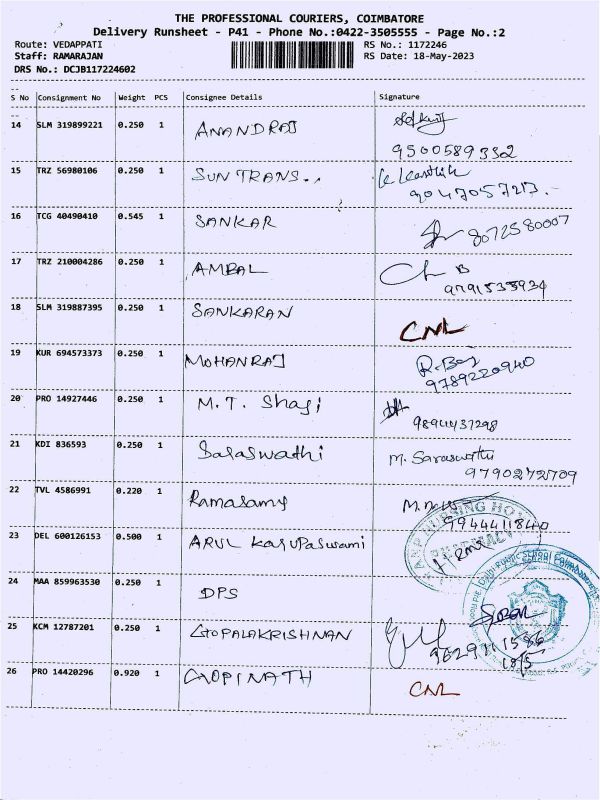 THE PROFESSIONAL COURIERS, COIMBATORE
Delivery Runsheet - P41 - Phone No.:0422-3505555 - Page No.:2
Route: VEDAPPATI RS No.: 1172246
Staff: RAMARAJAN RS Date: 18-May-2023
DRS No.: DCJB117224602
S No Consignment No Weight PCS Consignee Details Signature
14 SLM 319899221 0.250 1 ANANDRAJ
9500589332
15 TRZ 56980106 0.250 1 SUN TRANS.. K Karthik
9047057217.-
16 TCG 40490410 0.545 1 SANKAR 8072580007
17 TRZ 210004286 0.250 1 AMBAL
9791535934
18 SLM 319887395 0.250 1 SANKARAN CNL
19 KUR 694573373 0.250 1 MOHANRAJ
9789220940
20 PRO 14927446 0.250 1 M.T. Shaji
9894437298
21 KDI 836593 0.250 1 Saraswathi M. Saraswathi
9790272709
22 TVL 4586991 0.220 1 Ramasamy
9944411840
23 DEL 600126153 0.500 1 ARUL Karupaswami
24 MAA 859963530 0.250 1 DPS
25 KCM 12787201 0.250 1 GOPALAKRISHNAN
9629111586
18/5
26 PRO 14420296 0.920 1 GOPINATH CNL